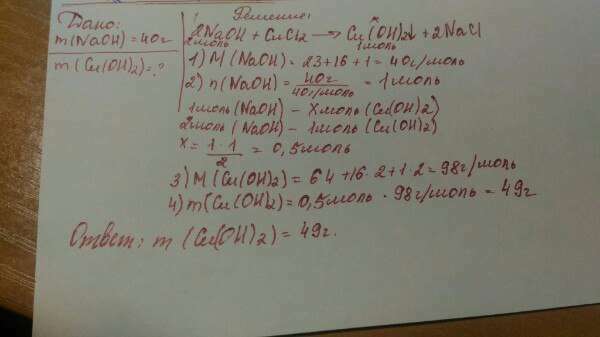 Дано:
m(NaOH)=40г
m(Cu(OH)2)=?
Решение:
2NaOH + CuCl2 → Cu(OH)2↓ + 2NaCl
2моль 1моль
1) M(NaOH) = 23+16+1 = 40г/моль
2) n(NaOH) = 40г / 40г/моль = 1моль
1моль(NaOH) – Xмоль(Cu(OH)2)
2моль(NaOH) – 1моль(Cu(OH)2)
X = 1·1 / 2 = 0,5моль
3) M(Cu(OH)2) = 64+16·2+1·2=98г/моль
4) m(Cu(OH)2)=0,5моль · 98г/моль = 49г
Ответ: m (Cu(OH)2) = 49г.